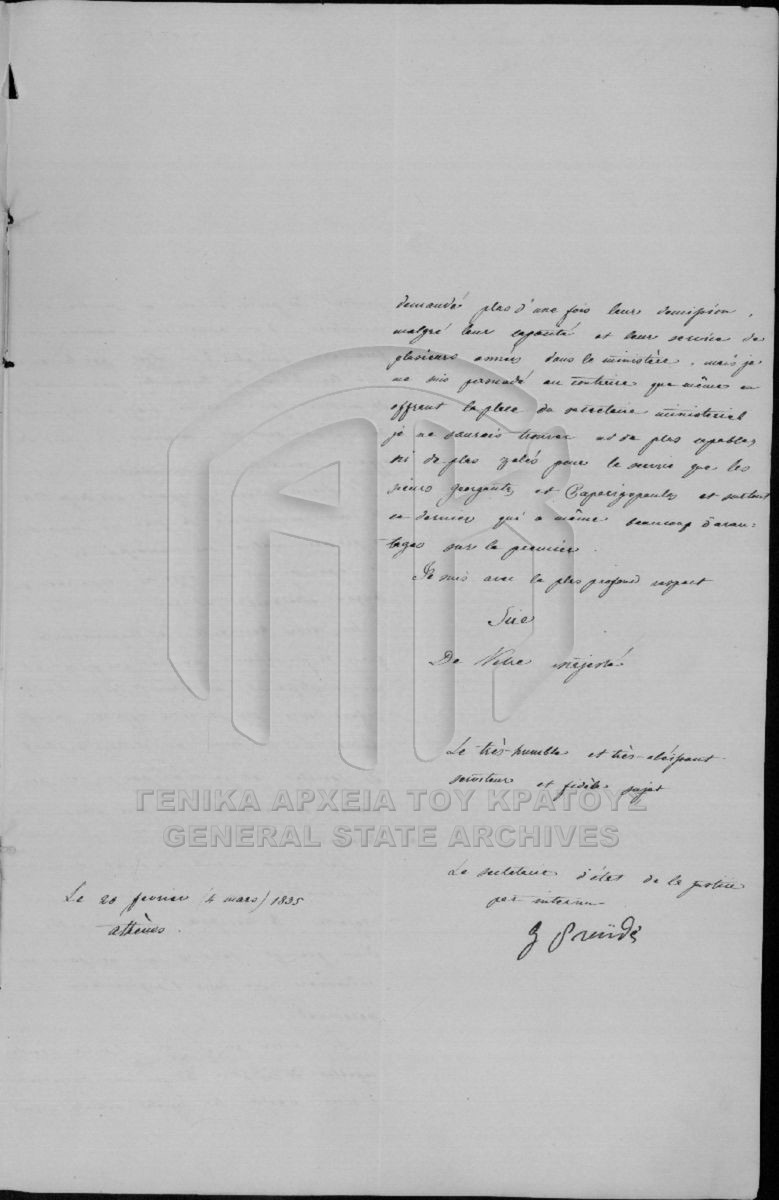 demandé plus d'une fois leur demission,
malgré leur capacité et leur service de
plusieurs années dans le ministère, mais je
me suis persuadé au contraire que même en
offrant la place du secretaire ministeriel
je ne saurois trouver ni de plus capables,
ni de plus zelés pour le service que les
sieurs Georgantes et Paparigopoulos et surtout
ce dernier qui a même beaucoup d'avan-
tages sur le premier.
Je suis avec le plus profond respect
Sire
De Votre majesté
Le très-humble et très-obéissant
serviteur et fidèle sujet
ΓΕΝΙΚΑ ΑΡΧΕΙΑ ΤΟΥ ΚΡΑΤΟΥΣ
GENERAL STATE ARCHIVES
Le secretaire d'état de la justice
par interim
Le 20 fevrier (4 mars) 1835
athènes.
G Praidis